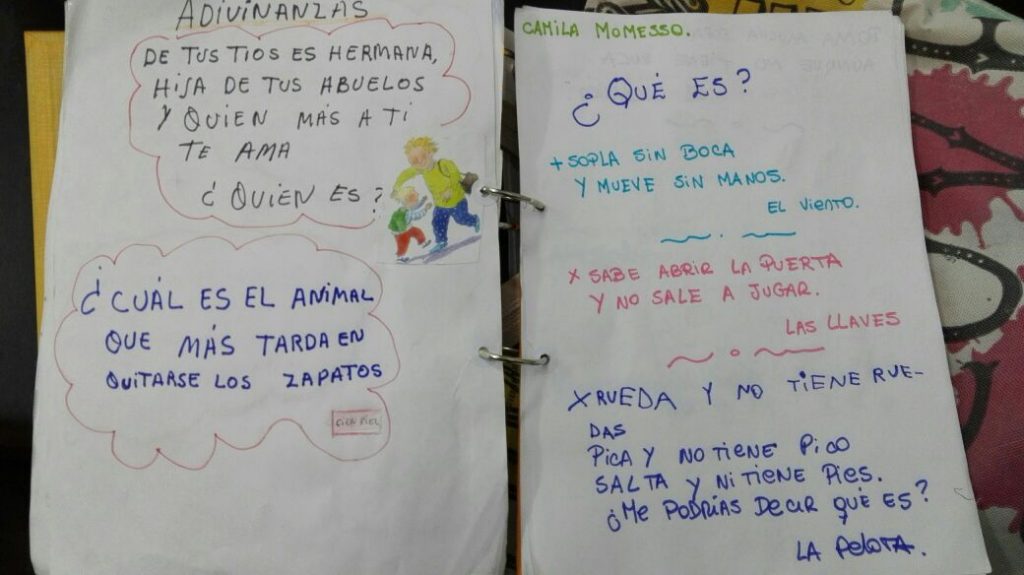 ADIVINANZAS
DE TUS TIOS ES HERMANA,
HIJA DE TUS ABUELOS
Y QUIEN MÁS A TI
TE AMA
¿QUIEN ES?
¿CUÁL ES EL ANIMAL
QUE MÁS TARDA EN
QUITARSE LOS ZAPATOS
CIEN PIES
CAMILA MOMESSO.
¿QUÉ ES?
+ SOPLA SIN BOCA
Y MUEVE SIN MANOS.
EL VIENTO.
X SABE ABRIR LA PUERTA
Y NO SALE A JUGAR.
LAS LLAVES
X RUEDA Y NO TIENE RUE-
DAS
PICA Y NO TIENE PICO
SALTA Y NI TIENE PIES.
¿ME PODRÍAS DECIR QUÉ ES?
LA PELOTA.